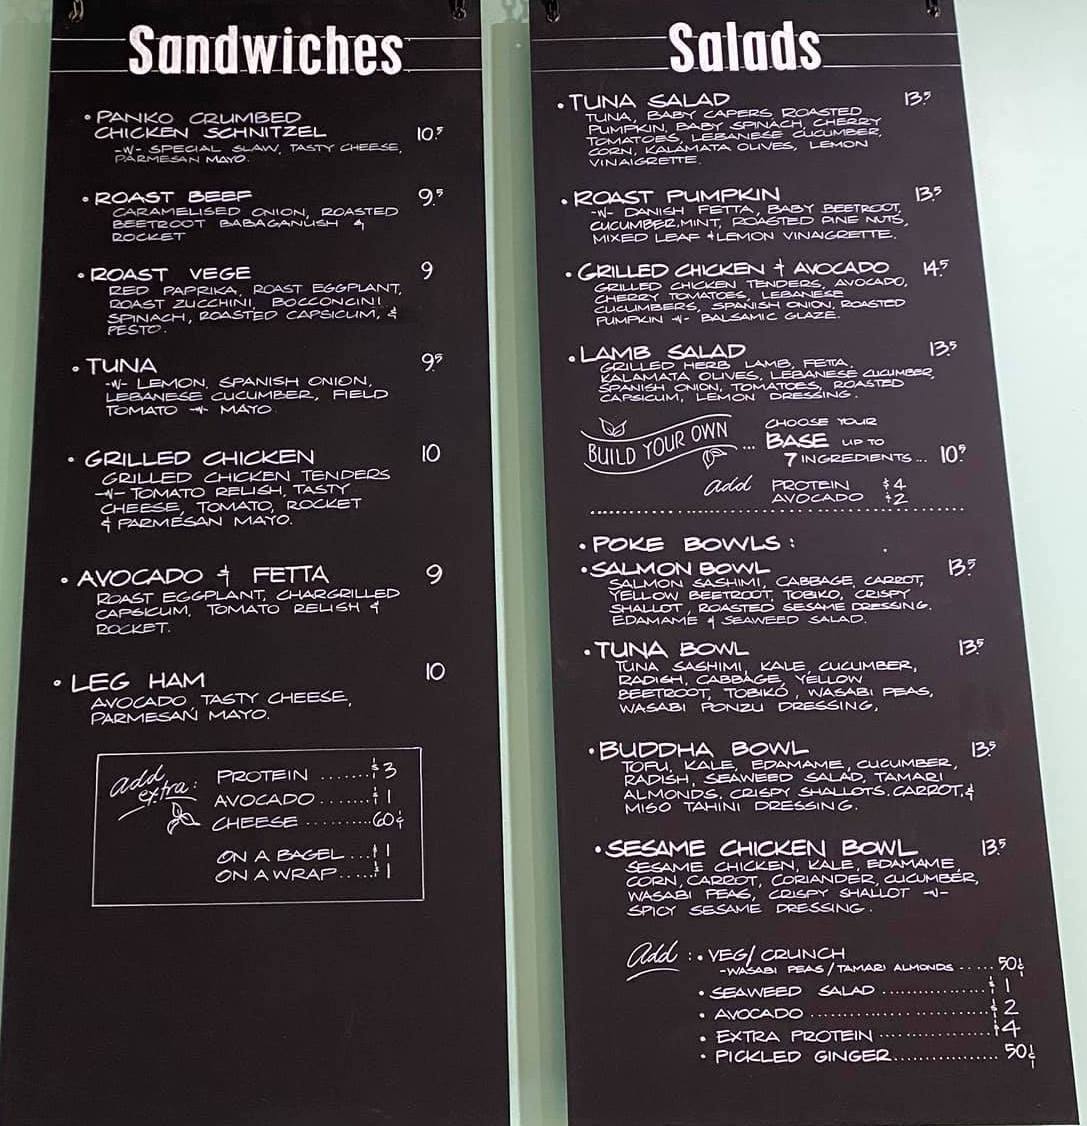 Sandwiches
• PANKO CRUMBED
CHICKEN SCHNITZEL 10.5
-W- SPECIAL SLAW, TASTY CHEESE,
PARMESAN MAYO.
• ROAST BEEF 9.5
CARAMELISED ONION, ROASTED
BEETROOT BABAGANUSH &
ROCKET
• ROAST VEGE 9
RED PAPRIKA, ROAST EGGPLANT,
ROAST ZUCCHINI, BOCCONCINI
SPINACH, ROASTED CAPSICUM, &
PESTO.
• TUNA 9.5
-W- LEMON, SPANISH ONION,
LEBANESE CUCUMBER, FIELD
TOMATO -W- MAYO
• GRILLED CHICKEN 10
GRILLED CHICKEN TENDERS
-W- TOMATO RELISH, TASTY
CHEESE, TOMATO, ROCKET
& PARMESAN MAYO.
• AVOCADO & FETTA 9
ROAST EGGPLANT, CHARGRILLED
CAPSICUM, TOMATO RELISH &
ROCKET.
• LEG HAM 10
AVOCADO, TASTY CHEESE,
PARMESAN MAYO.
add
extra:
PROTEIN .......$3
AVOCADO.......$1
CHEESE..........60¢
ON A BAGEL...$1
ON A WRAP.....$1
Salads
• TUNA SALAD 13.5
TUNA, BABY CAPERS, ROASTED
PUMPKIN, BABY SPINACH, CHERRY
TOMATOES, LEBANESE CUCUMBER,
CORN, KALAMATA OLIVES, LEMON
VINAIGRETTE.
• ROAST PUMPKIN 13.5
-W- DANISH FETTA, BABY BEETROOT,
CUCUMBER, MINT, ROASTED PINE NUTS,
MIXED LEAF & LEMON VINAIGRETTE.
• GRILLED CHICKEN & AVOCADO 14.5
GRILLED CHICKEN TENDERS, AVOCADO,
CHERRY TOMATOES, LEBANESE
CUCUMBERS, SPANISH ONION, ROASTED
PUMPKIN -W- BALSAMIC GLAZE.
• LAMB SALAD 13.5
GRILLED HERB LAMB, FETTA,
KALAMATA OLIVES, LEBANESE CUCUMBER,
SPANISH ONION, TOMATOES, ROASTED
CAPSICUM, LEMON DRESSING.
BUILD YOUR OWN ...
CHOOSE YOUR
BASE UP TO
7 INGREDIENTS... 10.5
add PROTEIN $4
AVOCADO $2
• POKE BOWLS:
• SALMON BOWL 13.5
SALMON SASHIMI, CABBAGE, CARROT,
YELLOW BEETROOT, TOBIKO, CRISPY
SHALLOT, ROASTED SESAME DRESSING.
EDAMAME & SEAWEED SALAD.
• TUNA BOWL 13.5
TUNA SASHIMI, KALE, CUCUMBER,
RADISH, CABBAGE, YELLOW
BEETROOT, TOBIKO, WASABI PEAS,
WASABI PONZU DRESSING,
• BUDDHA BOWL 13.5
TOFU, KALE, EDAMAME, CUCUMBER,
RADISH, SEAWEED SALAD, TAMARI
ALMONDS, CRISPY SHALLOTS, CARROT, &
MISO TAHINI DRESSING.
• SESAME CHICKEN BOWL 13.5
SESAME CHICKEN, KALE, EDAMAME,
CORN, CARROT, CORIANDER, CUCUMBER,
WASABI PEAS, CRISPY SHALLOT -W-
SPICY SESAME DRESSING.
Add: • VEG/CRUNCH
-WASABI PEAS/TAMARI ALMONDS ..... 50¢
• SEAWEED SALAD ................$1
• AVOCADO ........................$2
• EXTRA PROTEIN ................$4
• PICKLED GINGER................ 50¢